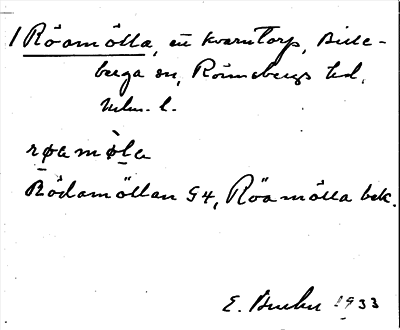 1 Röamölla, en kvarntorp, Bille-
berga sn, Rönnebergs hd,
Mlm. l.
røamøla
Rödamöllan G4, Röamölla bek.
E. 1933